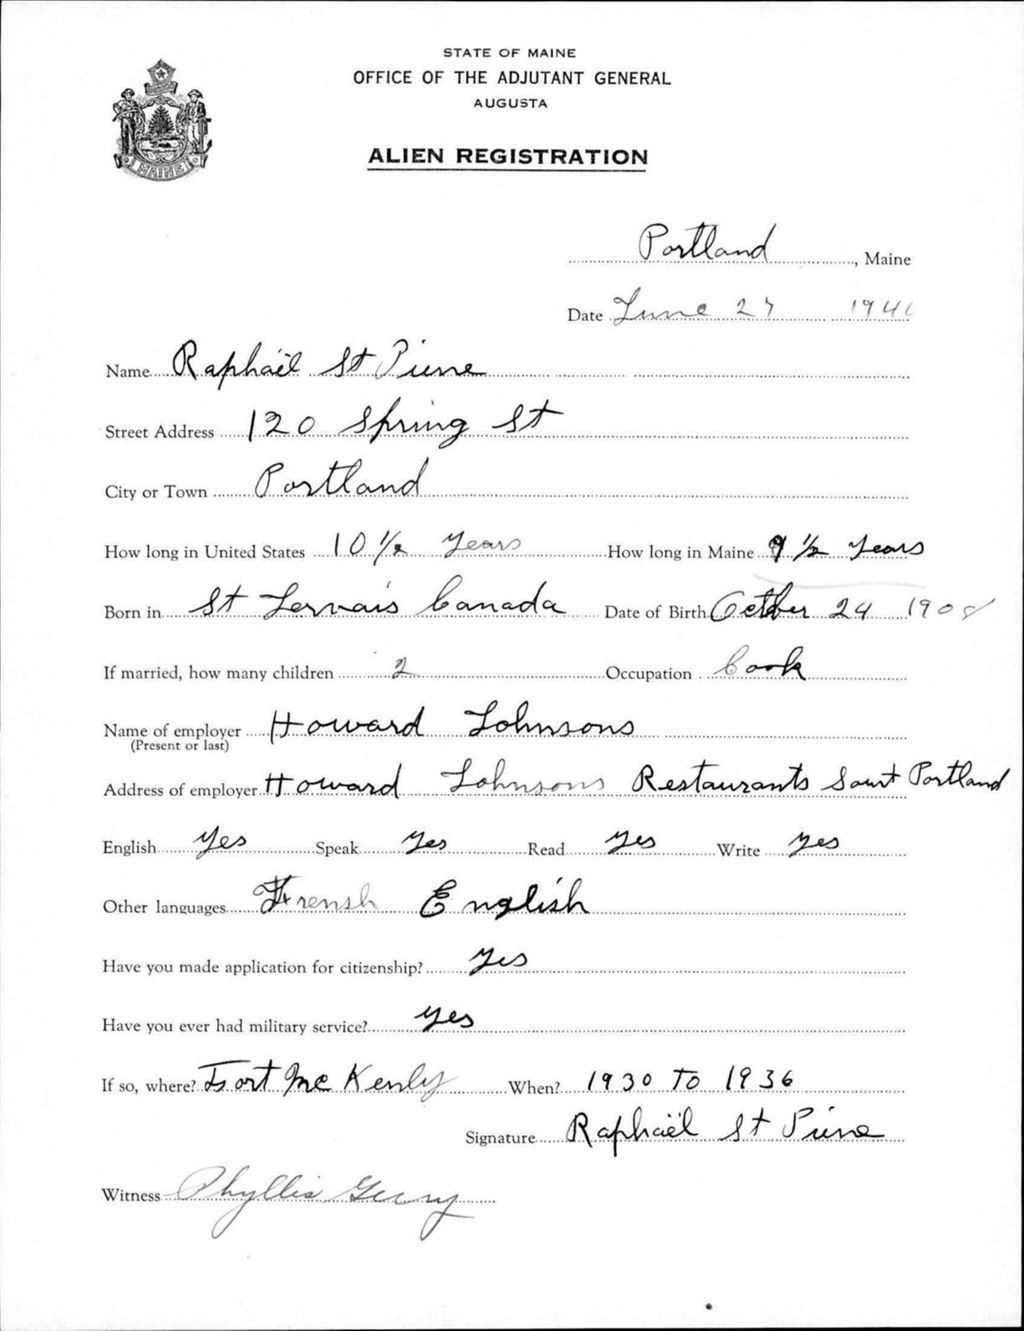 STATE OF MAINE
OFFICE OF THE ADJUTANT GENERAL
AUGUSTA
ALIEN REGISTRATION
MAINE
Portland, Maine
Date June 27 194
Name Raphaël St Pierre
Street Address 120 Spring St
City or Town Portland
How long in United States 10 1/2 Years How long in Maine 9 1/2 Years
Born in St Gervais Canada Date of Birth October 24 190
If married, how many children 2 Occupation Cook
Name of employer Howard Johnsons
(Present or last)
Address of employer Howard Johnsons Restaurants Portland
English Yes Speak Yes Read Yes Write Yes
Other languages Frensh English
Have you made application for citizenship? Yes
Have you ever had military service? Yes
If so, where? Fort Mc Kenly When? 1930 To 1936
Signature Raphaël St Pierre
Witness Phyllis